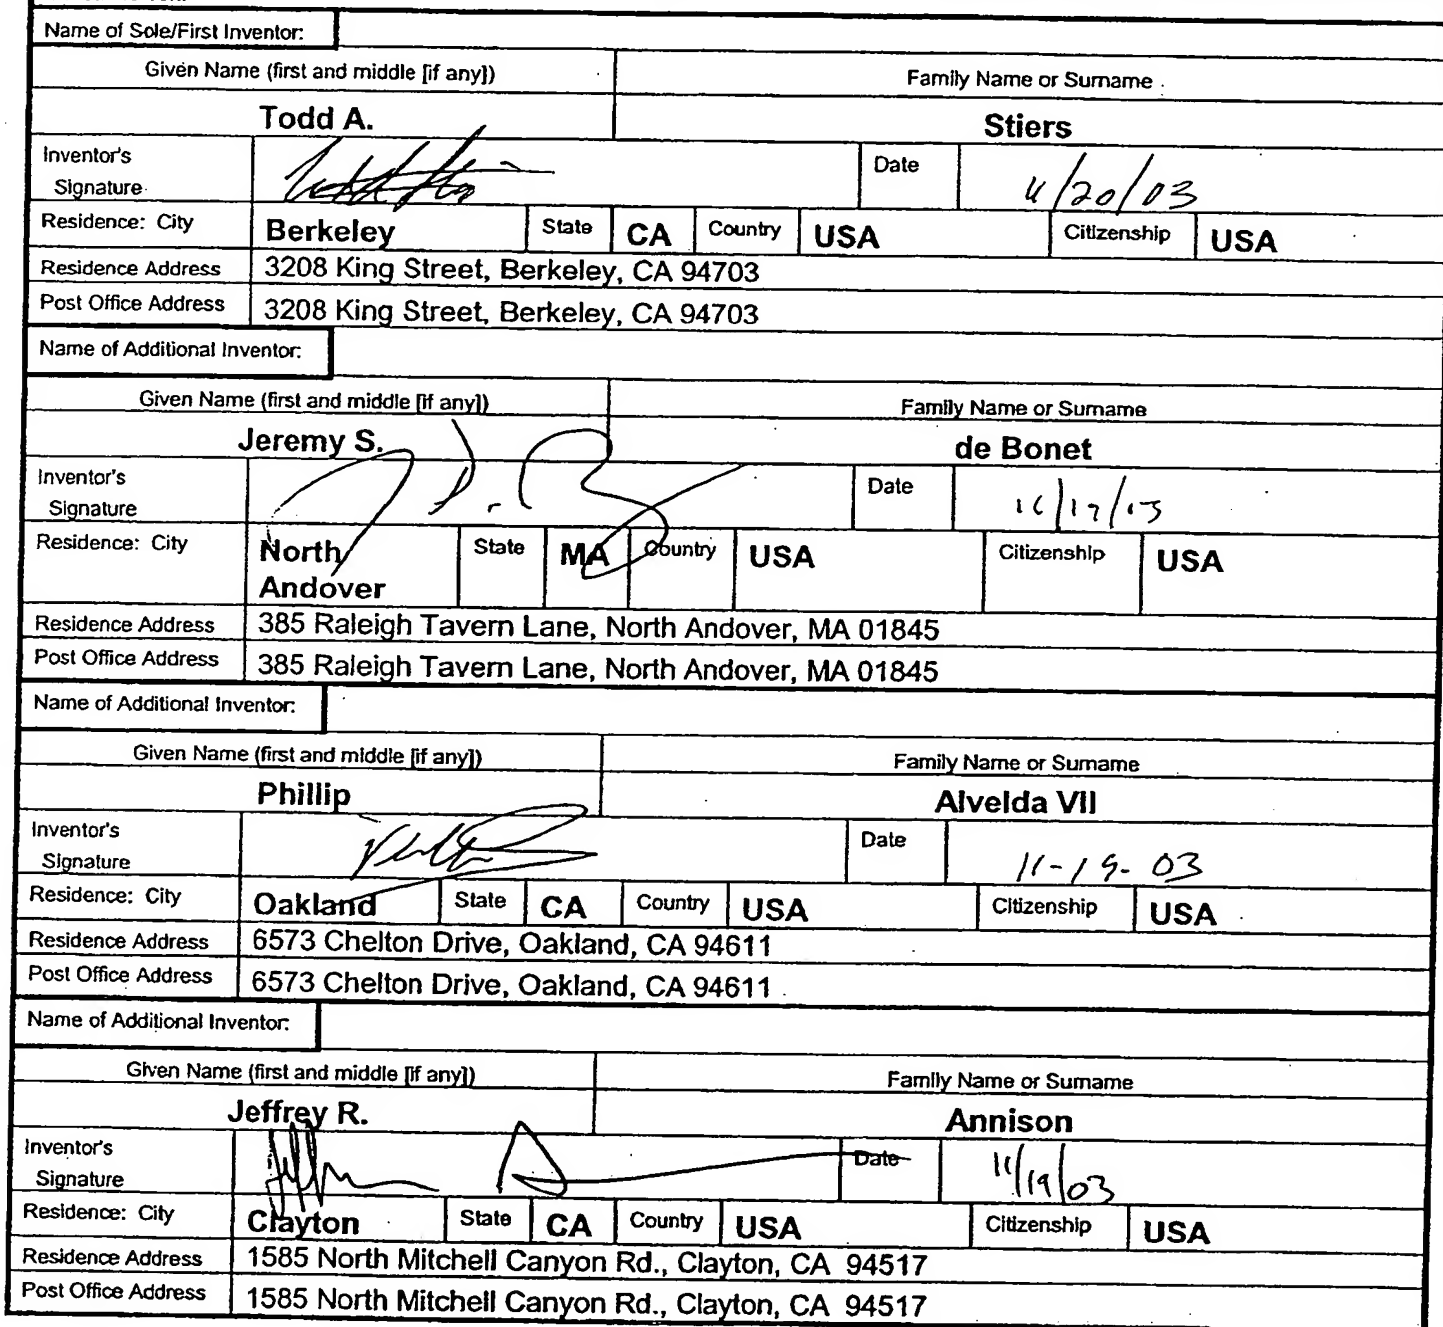 Name of Sole/First Inventor:
Given Name (first and middle [if any]) Family Name or Surname
Todd A. Stiers
Inventor's Signature Date 11/20/03
Residence: City Berkeley State CA Country USA Citizenship USA
Residence Address 3208 King Street, Berkeley, CA 94703
Post Office Address 3208 King Street, Berkeley, CA 94703
Name of Additional Inventor:
Given Name (first and middle [if any]) Family Name or Surname
Jeremy S. de Bonet
Inventor's Signature Date
Residence: City North Andover State MA Country USA Citizenship USA
Residence Address 385 Raleigh Tavern Lane, North Andover, MA 01845
Post Office Address 385 Raleigh Tavern Lane, North Andover, MA 01845
Name of Additional Inventor:
Given Name (first and middle [if any]) Family Name or Surname
Phillip Alvelda VII
Inventor's Signature Date 11-19-03
Residence: City Oakland State CA Country USA Citizenship USA
Residence Address 6573 Chelton Drive, Oakland, CA 94611
Post Office Address 6573 Chelton Drive, Oakland, CA 94611
Name of Additional Inventor:
Given Name (first and middle [if any]) Family Name or Surname
Jeffrey R. Annison
Inventor's Signature Date 11/19/03
Residence: City Clayton State CA Country USA Citizenship USA
Residence Address 1585 North Mitchell Canyon Rd., Clayton, CA 94517
Post Office Address 1585 North Mitchell Canyon Rd., Clayton, CA 94517